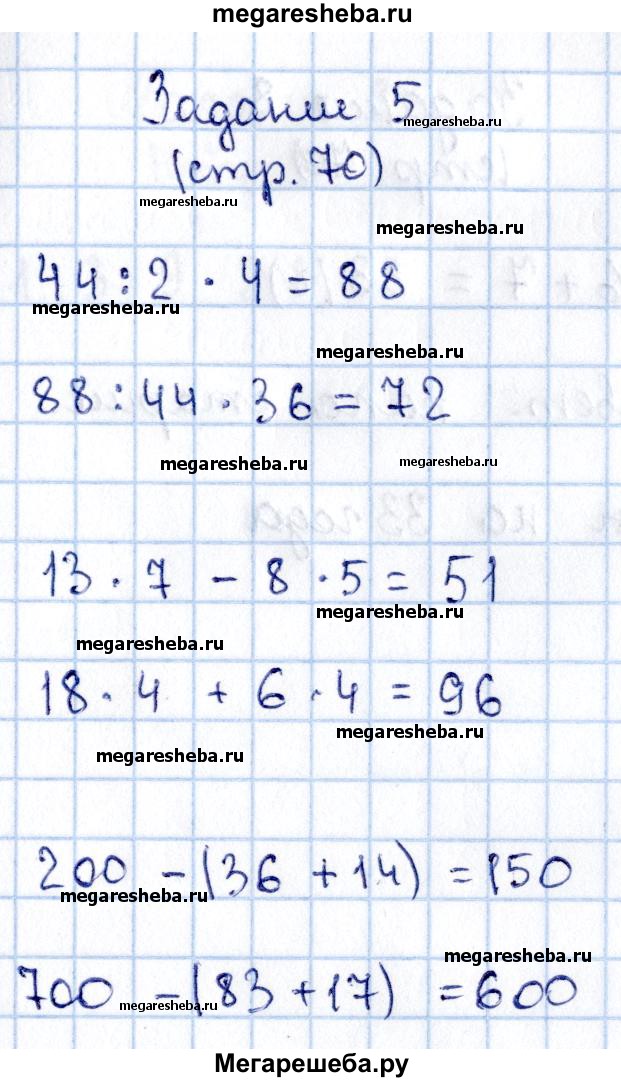 megaresheba.ru
Задание 5
megaresheba.ru
(стр. 70)
megaresheba.ru
megaresheba.ru
44:2 · 4 = 88
megaresheba.ru
megaresheba.ru
88:44 · 36 = 72
megaresheba.ru
megaresheba.ru
13 · 7 - 8 · 5 = 51
megaresheba.ru
megaresheba.ru
18 · 4 + 6 · 4 = 96
megaresheba.ru
megaresheba.ru
200 - (36 + 14) = 150
megaresheba.ru
megaresheba.ru
700 - (83 + 17) = 600
megaresheba.ru
Мегарешеба.ру